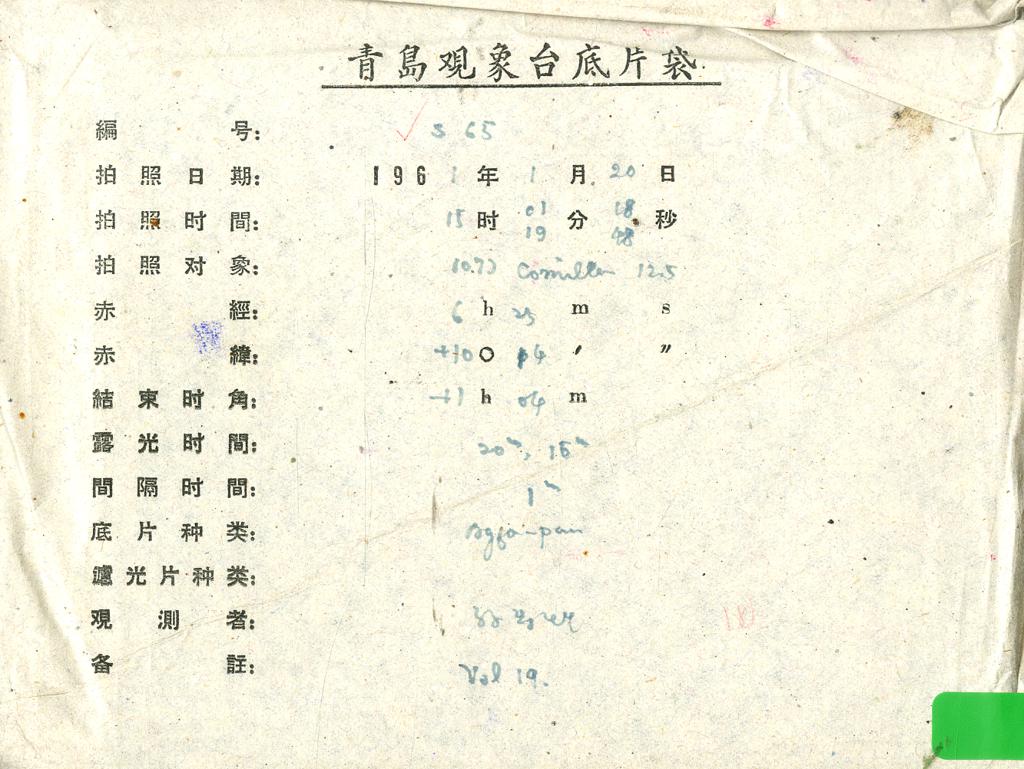 青島观象台底片袋
編号: S 65
拍照日期: 1961年1月20日
拍照时間: 15时 01 19 分 18 48 秒
拍照对象: (1077) Comillen 12.5
赤經: 6 h 25 m s
赤緯: +10 ○ 14 ′ ″
結束时角: +1 h 04 m
露光时間: 20ᵐ, 15ᵐ
間隔时間: 1ᵐ
底片种类: Agfa-pan
濾光片种类:
观測者:
备註: Vol 19.